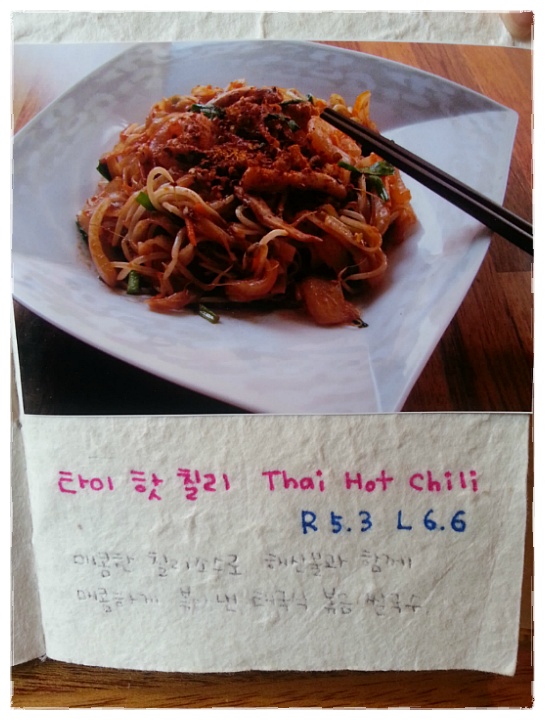 타이 핫 칠리 Thai Hot Chili
R 5.3 L 6.6
매콤한 칠리소스로 해산물과 함께
매콤하게 볶아낸 태국식 볶음 쌀국수